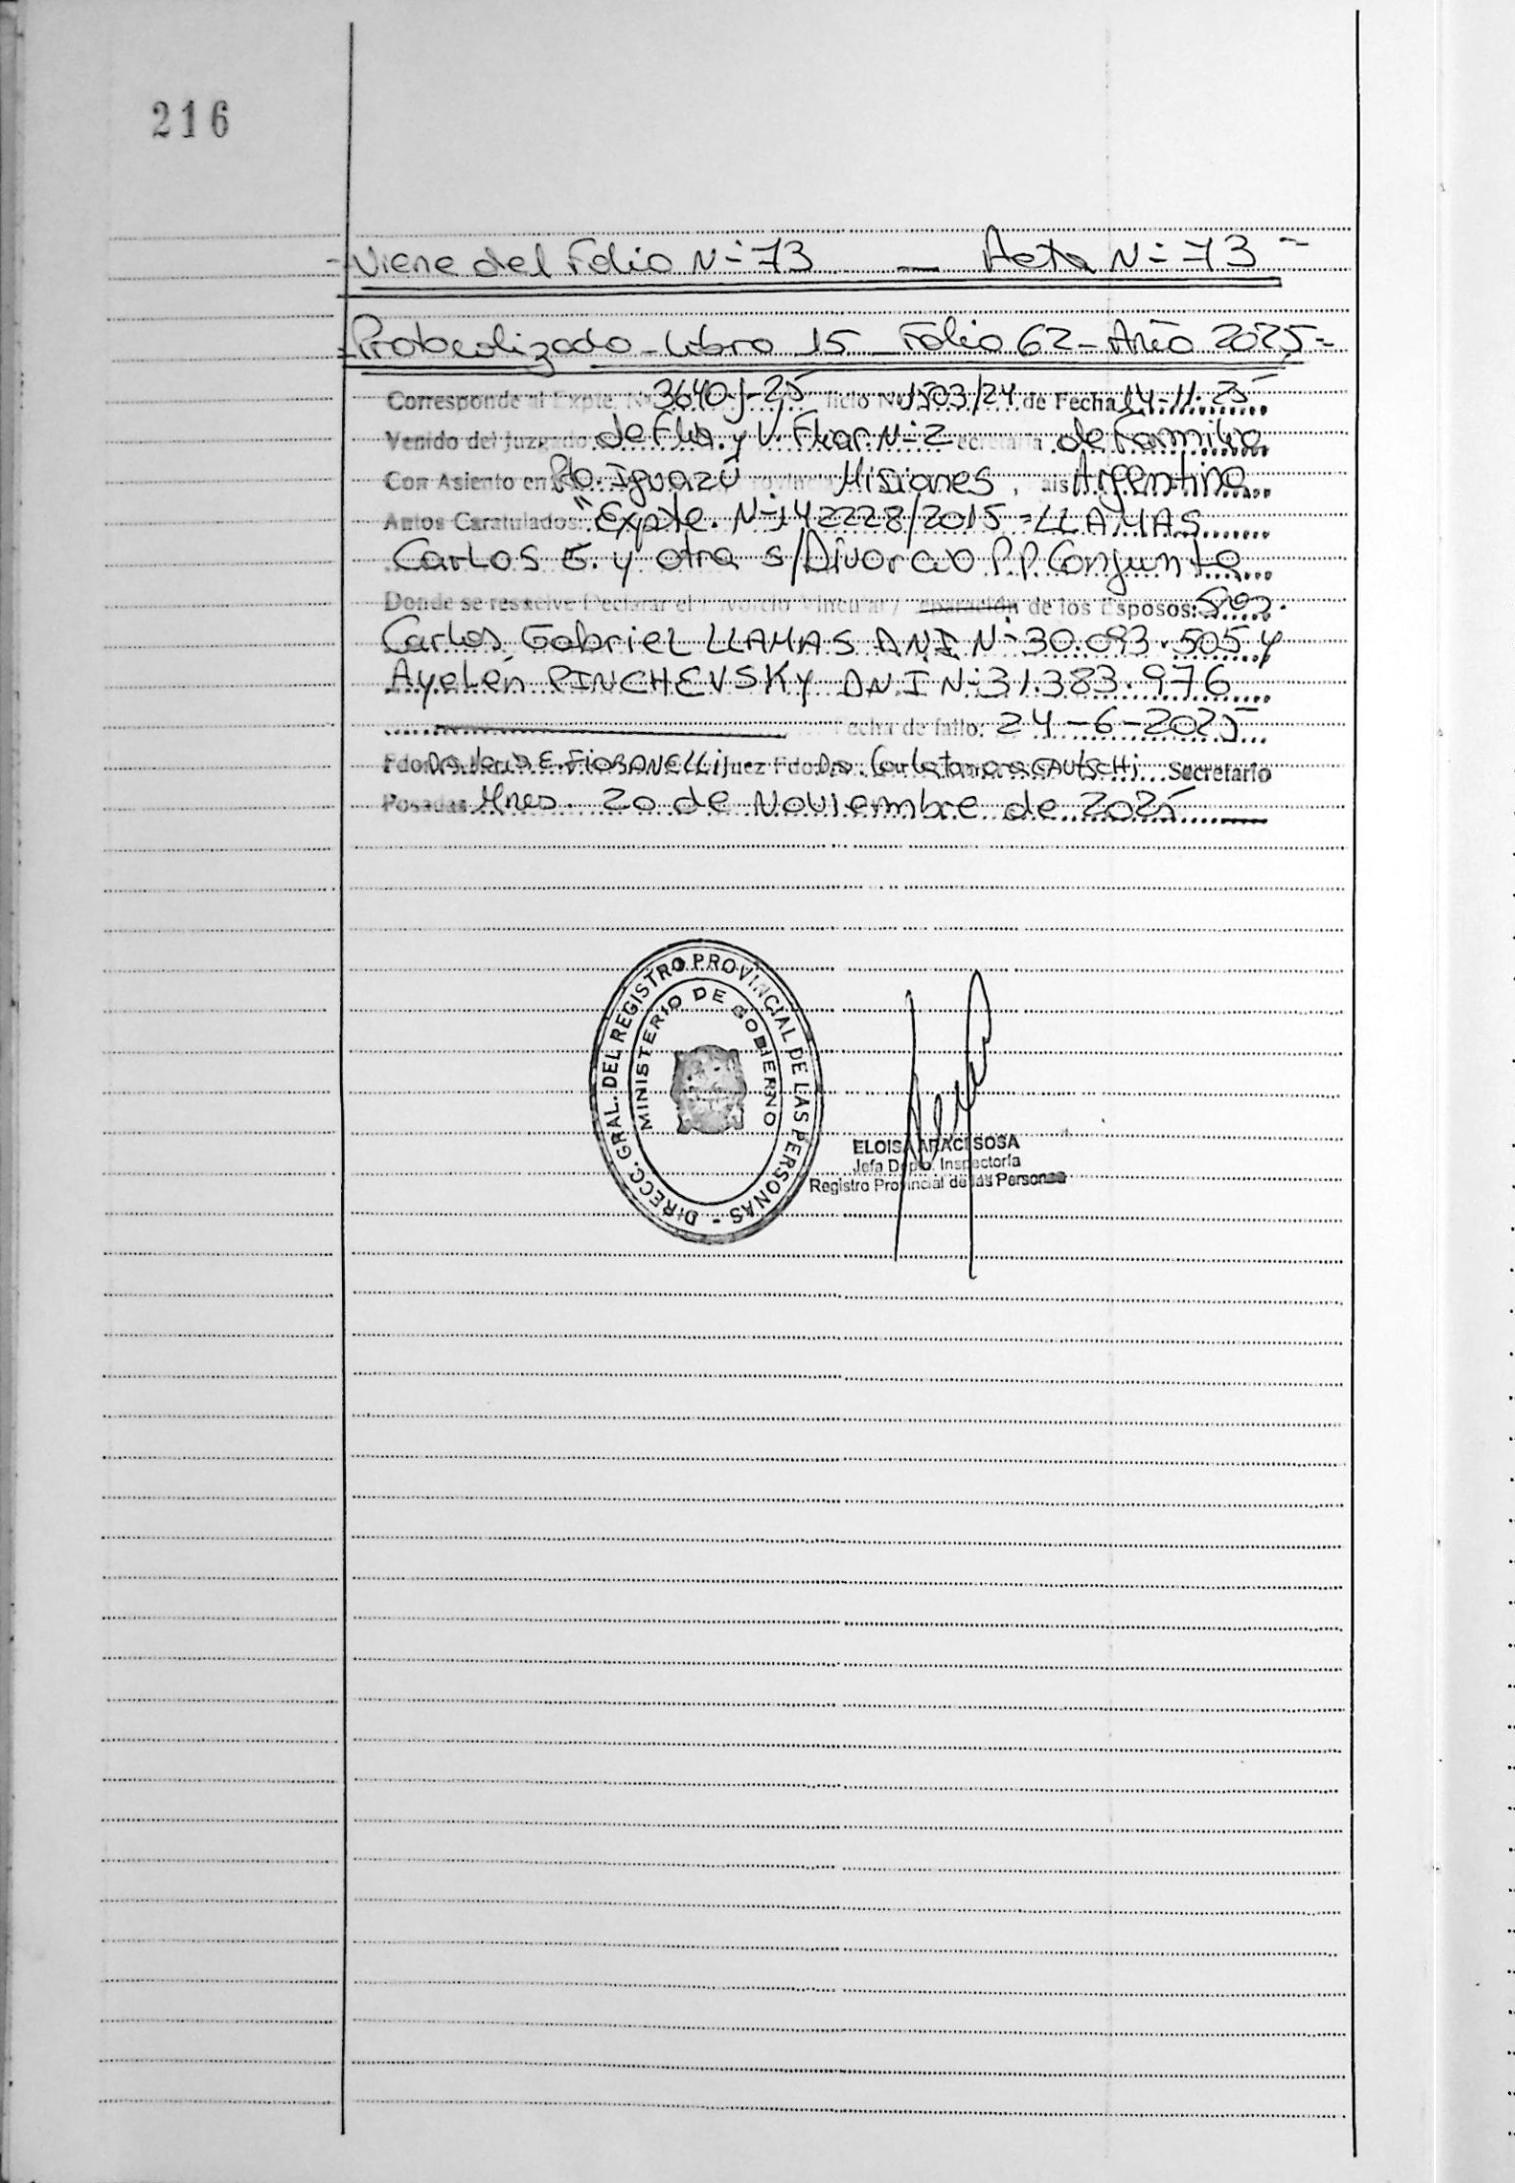 216
- Viene del Folio N-° 73 — Acta N-° 73 -
- Protocolizado - Libro 15 - Folio 62 - Año 2025 -
Corresponde al Expte. Nº 3640-J-25 ficio Nº 1503/24 de Fecha 14-11-25
Venido del Juzgado de Flia. y V. Fliar N-° 2 ecretaria de Familia
Con Asiento en Pto. Iguazú rovincia Misiones, aís Argentina
Autos Caratulados: "Expte. N-° 142228/2015 - LLAMAS
Carlos G. y otra s/Divorcio P.P. Conjunto
Donde se resuelve Declarar el Divorcio Vincular / eparación de los Esposos: Sres.
Carlos Gabriel LLAMAS D.N.I N-° 30.093.505 y
Ayelén PINCHEVSKY D.N.I N-° 31.383.976
Fecha de fallo: 24-6-2025
Fdo. E. FIORANELLI Juez Fdo. Dra. GAUTSCHi Secretario
Posadas Mnes. 20 de Noviembre de 2025
DIRECC. GRAL. DEL REGISTRO PROVINCIAL DE LAS PERSONAS -
MINISTERIO DE GOBIERNO
ELOISA ARACI SOSA
Jefa Dpto. Inspectoría
Registro Provincial de las Personas